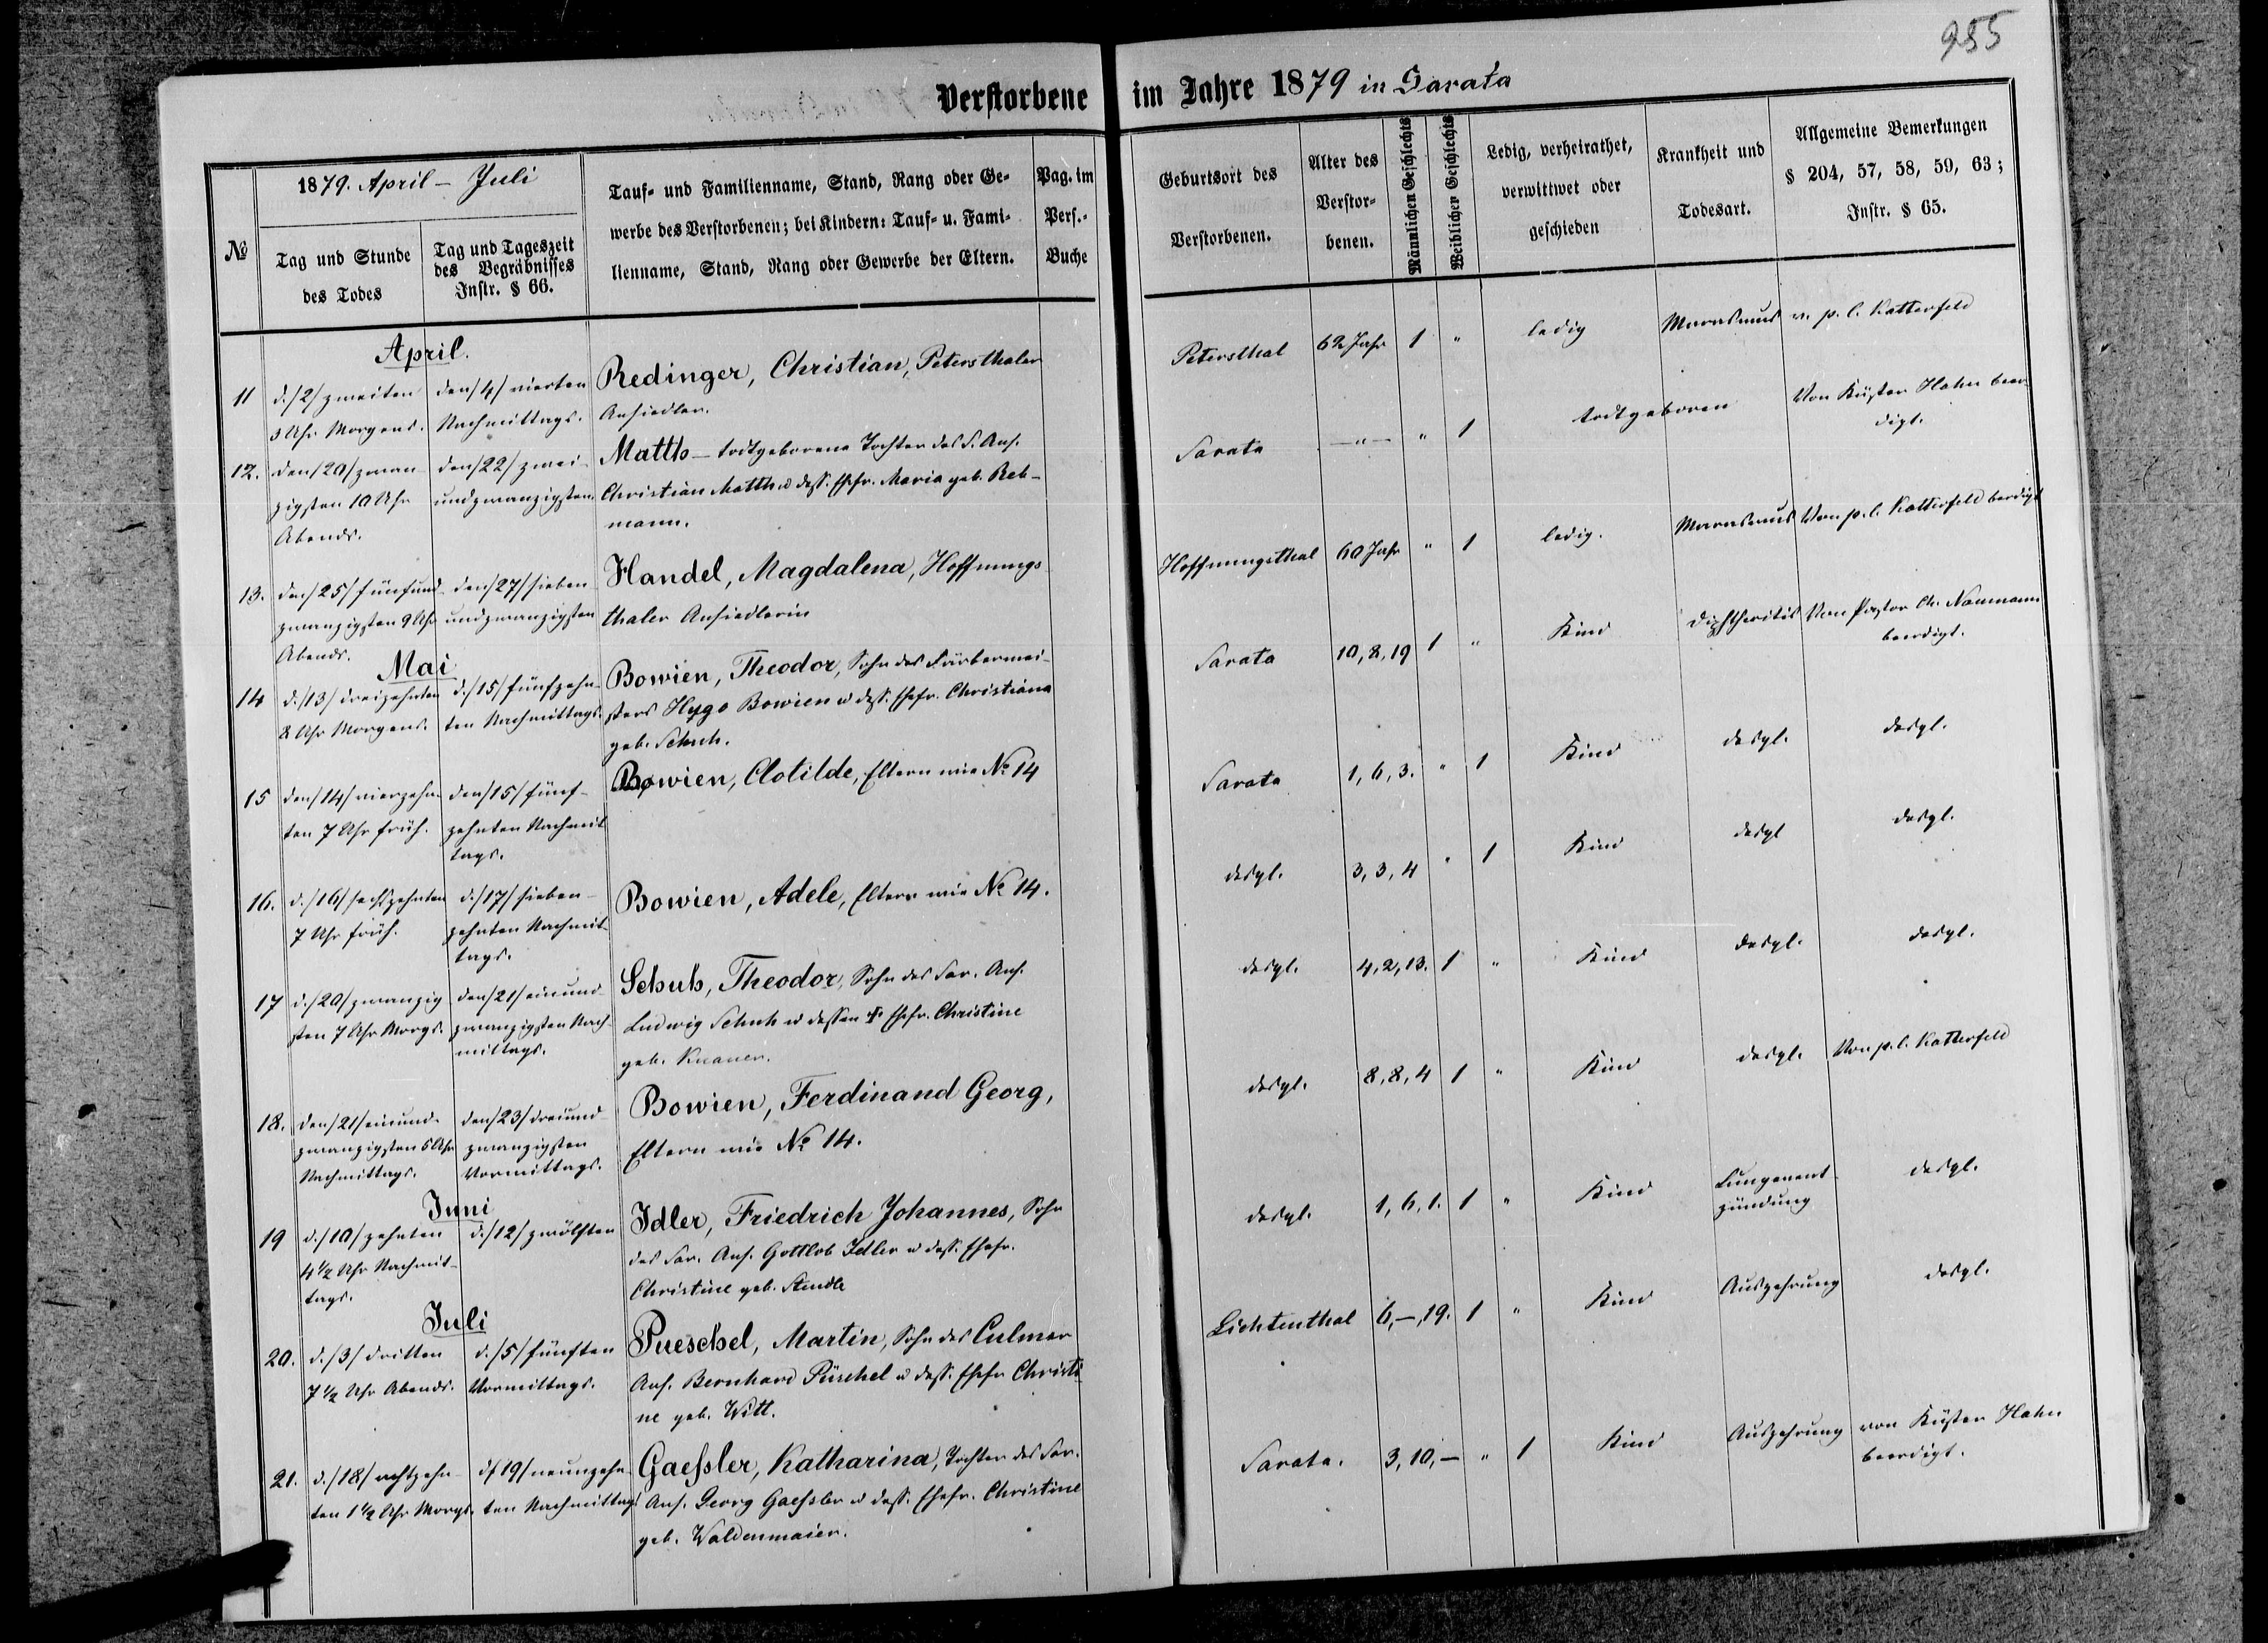 985
Verstorbene im Jahre 1879 in Sarata
№
1879. April – Juli
Tag und Stunde
des Todes
Tag und Tageszeit
des Begräbnisses
Instr. § 66.
Tauf- und Familienname, Stand, Rang oder Ge-
werbe des Verstorbenen; bei Kindern: Tauf- u. Fami-
lienname, Stand, Rang oder Gewerbe der Eltern.
Pag. im
Pers.-
Buche
Geburtsort des
Verstorbenen.
Alter des
Verstor-
benen.
Männlichen Geschlechts
Weiblichen Geschlechts
Ledig, verheirathet,
verwittwet oder
geschieden
Krankheit und
Todesart.
Allgemeine Bemerkungen
§ 204, 57, 58, 59, 63;
Instr. § 65.
April.
11
d./2/ zweiten
3 Uhr Morgens.
den/4/ vierten
Nachmittags.
Redinger, Christian, Petersthaler
Ansiedler.
Petersthal
62 Jahr
1
"
ledig
Marasmus
v. p. l. Katterfeld
12.
den/20/ zwan-
zigsten 10 Uhr
Abends.
den/22/ zwei-
undzwanzigsten.
Matth – todtgeborene Tochter des S. Ans.
Christian Matth u dess. Ehefr. Maria geb. Reb-
mann.
Sarata
—"—
"
1
todtgeboren
Von Küster Hahn beer-
digt.
13.
den/25/ fünfund-
zwanzigsten 9 Uhr
Abends.
den/27/ sieben
undzwanzigsten
Handel, Magdalena, Hoffnungs-
thaler Ansiedlerin
Hoffnungsthal
60 Jahr
"
1
ledig.
Marasmus
Von p. l. Katterfeld beerdigt
Mai
14
d./13/ dreizehnten
8 Uhr Morgens.
d./15/ fünfzehn-
ten Nachmittags.
Bowien, Theodor, Sohn des Färbermei-
sters Hugo Bowien u dess. Ehefr. Christiana
geb. Schuh.
Sarata
10, 8, 19
1
"
Kind
Diphtheritis
Von Pastor Ch. Naumann
beerdigt.
15
den/14/ vierzehn-
ten 7 Uhr früh.
den/15/ fünf-
zehnten Nachmit
tags.
Bowien, Clotilde, Eltern wie № 14
Sarata
1, 6, 3.
"
1
Kind
desgl.
desgl.
16.
d./16/ sechszehnten
7 Uhr früh.
d./17/ sieben-
zehnten Nachmit-
tags.
Bowien, Adele, Eltern wie № 14.
desgl.
3, 3, 4
"
1
Kind
desgl
desgl.
17
d./20/ zwanzig
sten 7 Uhr Morgs.
den/21/ einund-
zwanzigsten Nach-
mittags.
Schuh, Theodor, Sohn des Sar. Ans.
Ludwig Schuh u dessen Ehefr. Christine
geb. Knauer.
desgl.
4, 2, 13.
1
"
Kind
desgl.
desgl.
18.
den/21/ einund-
zwanzigsten 6 Uhr
Nachmittags.
den/23/ dreiund-
zwanzigsten
Vormittags.
Bowien, Ferdinand Georg,
Eltern wie № 14.
desgl.
8, 8, 4
1
"
Kind
desgl.
Von p. l. Katterfeld
Juni
19
d./10/ zehnten
4 ½ Uhr Nachmit-
tags.
d./12/ zwölften
Idler, Friedrich Johannes, Sohn
des Sar. Ans. Gottlob Idler u dess. Ehefr.
Christine geb. Steudle
desgl.
1, 6, 1.
1
"
Kind
Lungenent-
zündung
desgl.
Juli
20.
d./3/ dritten
7 ½ Uhr Abends.
d./5/ fünften
Vormittags.
Pueschel, Martin, Sohn des Culmer
Ans. Bernhard Püschel u dess. Ehefr Christi-
ne geb. Witt.
Lichtenthal
6, –, 19.
1
"
Kind
Auszehrung
desgl.
21.
d./18/ achtzehn-
ten 1 ½ Uhr Morgs.
d/19/ neunzehn-
ten Nachmittags
Gaeßler, Katharina, Tochter des Sar.
Ans. Georg Gaeßler u dess. Ehefr. Christine
geb. Waldenmaier.
Sarata.
3, 10, –
"
1
Kind
Auszehrung
von Küster Hahn
beerdigt.